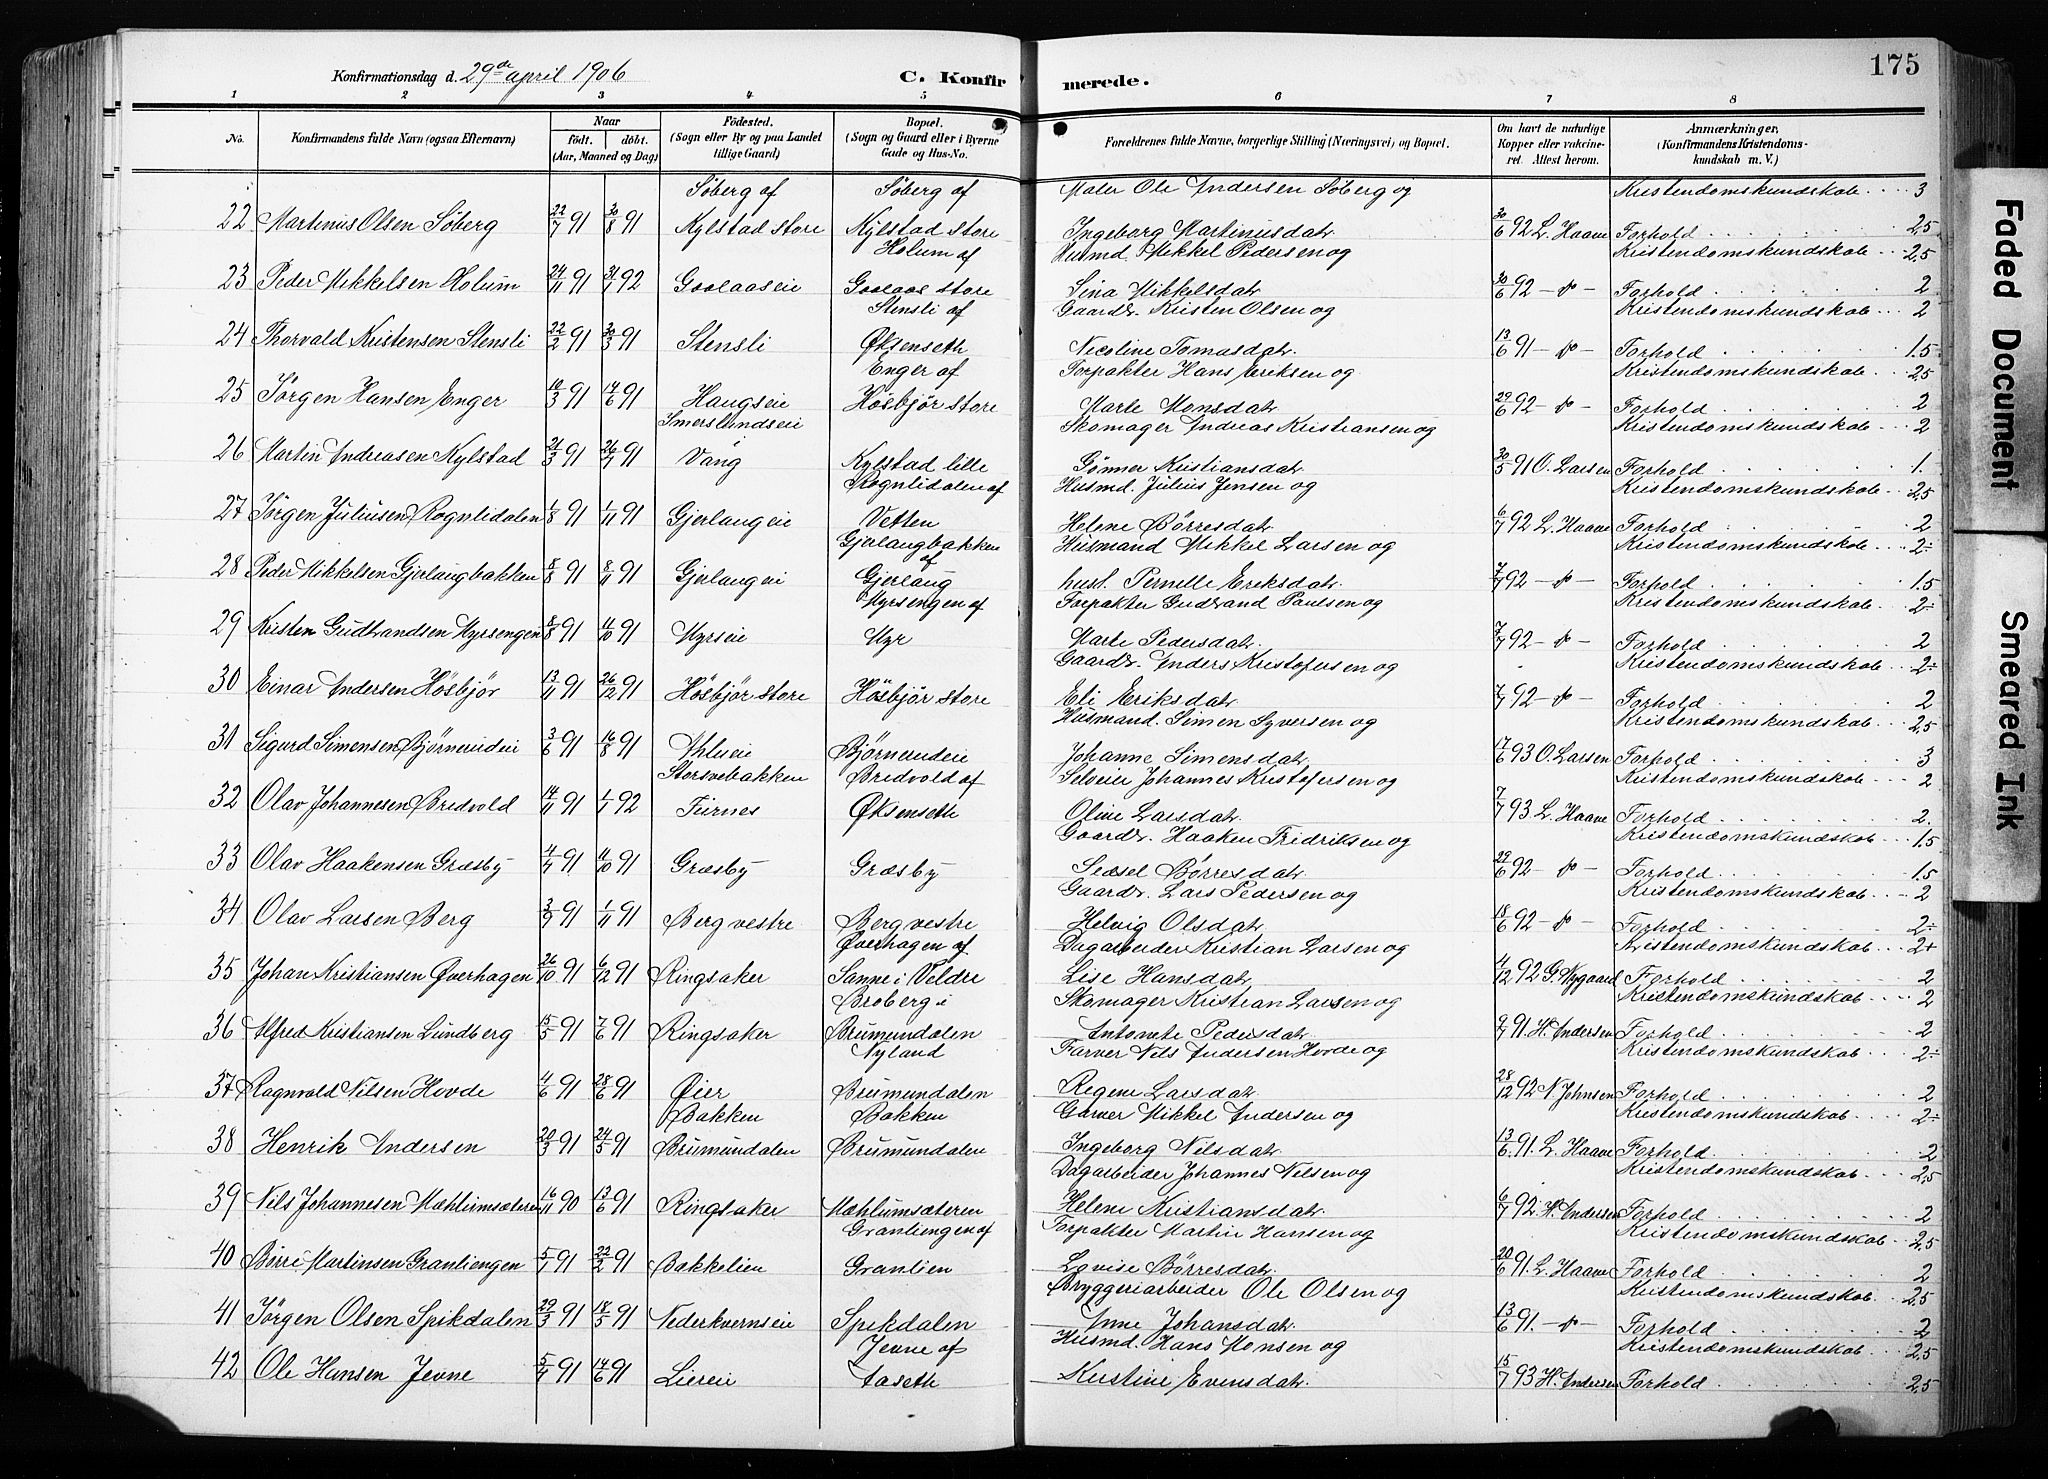 175
Konfirmationsdag d. 29de april 1906
C. Konfirmerede.
1 2 3 4 5 6 7 8
No. Konfirmandens fulde Navn (ogsaa Efternavn) Naar født. døbt. (Aar, Maaned og Dag) Fødested. (Sogn eller By og paa Landet tillige Gaard) Bopæl. (Sogn og Gaard eller i Byerne Gade og Hus-No. Forældrenes fulde Navne, borgerlige Stilling (Næringsvei) og Bopæl. Om havt de naturlige Kopper eller vakcineret. Attest herom. Anmærkninger. (Konfirmandens Kristendomskundskab m. V.)
Søberg af Søberg af Maler Ole Andersen Søberg og Kristendomskundskab 3
22 Martinus Olsen Søberg 22/7 91 30/8 91 Kylstad store Kylstad store Ingeborg Martinusdatr. 30/6 92 L. Haave Forhold 2,5
Holum af Husmd. Mikkel Pedersen og Kristendomskundskab 2,5
23 Peder Mikkelsen Holum 24/11 91 31/1 92 Gaalaaseie Gaalaas store Sina Mikkelsdatr. 30/6 92 Forhold 2
Stensli af Gaardbr. Kristen Olsen og Kristendomskundskab 2
24 Thorvald Kristensen Stensli 22/2 91 30/3 91 Stensli Øksenseth Nicoline Tomasdatr. 13/6 91 Forhold 1.5
Enger af Forpakter Hans Eriksen og Kristendomskundskab 2,5
25 Jørgen Hansen Enger 10/3 91 17/6 91 Haugseie Høsbjør store Marte Monsdatr. 29/6 92 Forhold 2
Imerslundseie Skomager Andreas Kristiansen og Kristendomskundskab 2
26 Martin Andreasen Kylstad 21/3 91 26/7 91 Vang Kylstad lille Gønner Kristiansdatr. 30/5 91 O. Larsen Forhold 1.
Rognlidalen af Husmd. Julius Jensen og Kristendomskundskab 2,5
27 Jørgen Juliusen Rognlidalen 1/8 91 1/11 91 Gjerlaugeie Vetten Helene Børresdatr. 6/7 92 L. Haave Forhold 2
Gjerlaugbakken af Husmand Mikkel Larsen og Kristendomskundskab 2÷
28 Peder Mikkelsen Gjerlaugbakken 8/8 91 8/11 91 Gjerlaugeie Gjerlaug hust. Pernelle Eriksdatr. 7/7 92 Forhold 1.5
Myrsengen af Forpakter Gudbrand Paulsen og Kristendomskundskab 2÷
29 Kristen Gudbrandsen Myrsengen 8/8 91 4/10 91 Myrseie Myr Marte Pedersdatr. 7/7 92 Forhold 2
Gaardbr. Anders Kristofersen og Kristendomskundskab 2÷
30 Einar Andersen Høsbjør 13/11 91 26/12 91 Høsbjør store Høsbjør store Eli Eriksdatr. 7/7 92 Forhold 2
Husmand Simen Syversen og Kristendomskundskab 2,5
31 Sigurd Simensen Bjørnerudeie 3/6 91 16/8 91 Bjørnerudeie Johanne Simensdatr. 17/6 93 O. Larsen Forhold 3
Storsvebakken Bredvold af Selveier Johannes Kristofersen og Kristendomskundskab 2
32 Olav Johannesen Bredvold 14/11 91 1/1 92 Furnes Øksenseth Oline Larsdatr. 7/7 93 L. Haave Forhold 2.
Gaardbr. Haaken Fredriksen og Kristendomskundskab 1.5
33 Olav Haakensen Græsby 4/7 91 4/10 91 Græsby Græsby Sidsel Børresdatr. 29/6 92 Forhold 1.5
Gaardbr. Lars Pedersen og Kristendomskundskab 2
34 Olav Larsen Berg 3/9 91 1/11 91 Berg vestre Berg vestre Helvig Olsdatr. 18/6 92 Forhold 2÷
Øverhagen af Dagarbeider Kristian Larsen og Kristendomskundskab 2+
35 Johan Kristiansen Øverhagen 26/10 91 6/12 91 Ringsaker Sanne i Veldre Lise Hansdatr. 4/12 92 G. Nygaard Forhold 2
Broberg i Skomager Kristian Larsen og Kristendomskundskab 2
36 Alfred Kristiansen Lundberg 15/5 91 7/6 91 Ringsaker Brumundalen Antonete Pedersdatr. 9/7 91 H. Andersen Forhold 2
Nyland Farver Nils Andersen Hovde og Kristendomskundskab 2÷
37 Ragnvald Nilsen Hovde 4/6 91 28/6 91 Øier Brumundalen Regine Larsdatr. 28/12 92 N. Johnsen Forhold 2
Bakken Bakken Garver Mikkel Andersen og Kristendomskundskab 2÷
38 Henrik Andersen 20/3 91 24/5 91 Brumundalen Brumundalen Ingeborg Nilsdatr. 13/6 91. L. Haave Forhold 2
Dagarbeider Johannes Nilsen og Kristendomskundskab 2,5
39 Nils Johannesen Mæhlumsæteren 16/11 90 13/6 91 Ringsaker Mæhlumsæteren Helene Kristiansdatr. 6/7 92. H. Andersen Forhold 2
Granliengen af Forpakter Martin Hansen og Kristendomskundskab 2,5
40 Børre Martinsen Granliengen 5/1 91 22/2 91 Bakkelien Granlien Lovise Børresdatr. 20/6 91. L. Haave Forhold 2
Bryggeriarbeider Ole Olsen og Kristendomskundskab 2,5
41 Jørgen Olsen Spikdalen 29/3 91 18/5 91 Nederkvernseie Spikdalen Anne Johansdatr. 13/6 91. Forhold 2
Jevne af Husmd. Hans Monsen og Kristendomskundskab 2,5
42 Ole Hansen Jevne 5/4 91 14/6 91 Liereie Taseth Kristine Evensdatr. 15/7 93 H. Andersen Forhold 2,5
Faded Document
Smeared Ink